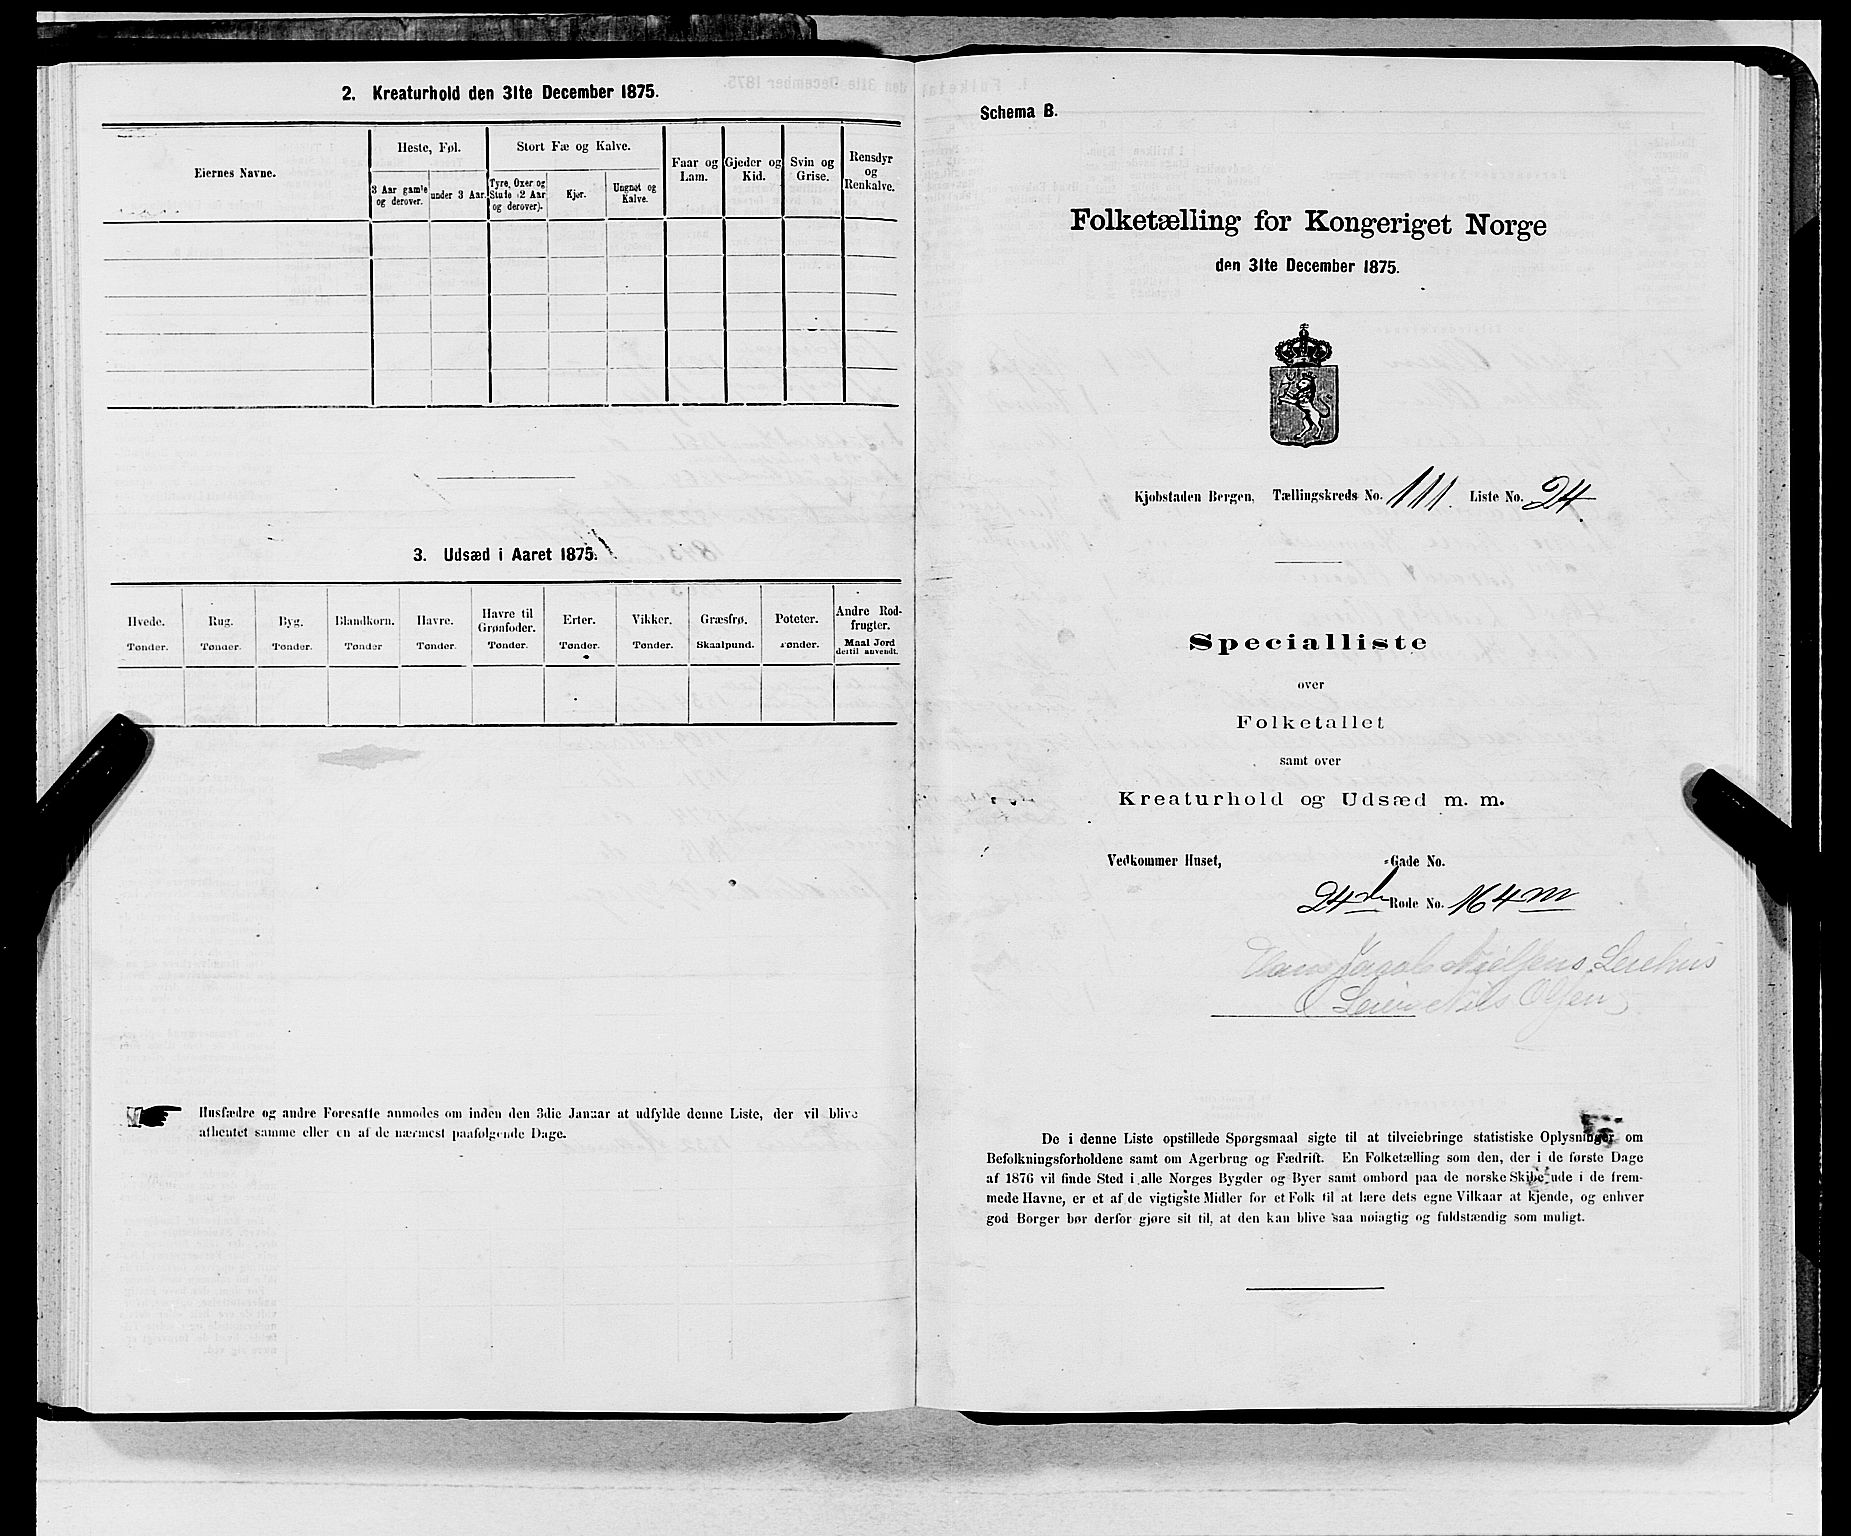 2. Kreaturhold den 31te December 1875.
Eiernes Navne.
Heste, Føl.
Stort Fæ og Kalve.
Faar og
Lam.
Gjeder og
Kid.
Svin og
Grise.
Rensdyr
og
Renkalve.
3 Aar gamle
og derover.
under 3 Aar.
Tyre, Oxer og
Stude (2 Aar
og derover).
Kjør.
Ungnøt og
Kalve.
3. Udsæd i Aaret 1875.
Hvede.
Tønder.
Rug.
Tønder.
Byg.
Tønder.
Blandkorn.
Tønder
Havre.
Tønder.
Havre til
Grønfoder.
Tønder.
Erter.
Tønder.
Vikker.
Tønder.
Græsfrø.
Skaalpund.
Poteter.
Tønder.
Andre Rod-
frugter.
Maal Jord
dertil anvendt.
Husfædre og andre Foresatte anmodes om inden den 3die Januar at udfylde denne Liste, der vil blive
afhentet samme eller en af de nærmest paafølgende Dage.
Schema B.
Folketælling for Kongeriget Norge
den 31te December 1875.
Kjøbstaden Bergen, Tællingskreds No. 111. Liste No. 24.
Specialliste
over
Folketallet
samt over
Kreaturhold og Udsæd m. m.
Vedkommer Huset, -Gade No.
24de Rode No. 164 m
Jacob Nielsens Leiehus
Leier Nils Olsen
De i denne Liste opstillede Spørgsmaal sigte til at tilveiebringe statistiske Oplysninger om
Befolkningsforholdene samt om Agerbrug og Fædrift. En Folketælling som den, der i de første Dage
af 1876 vil finde Sted i alle Norges Bygder og Byer samt ombord paa de norske Skibe ude i de frem-
mede Havne, er et af de vigtigste Midler for et Folk til at lære dets egne Vilkaar at kjende, og enhver
god Borger bør derfor gjøre sit til, at den kan blive saa nøiagtig og fuldstændig som muligt.